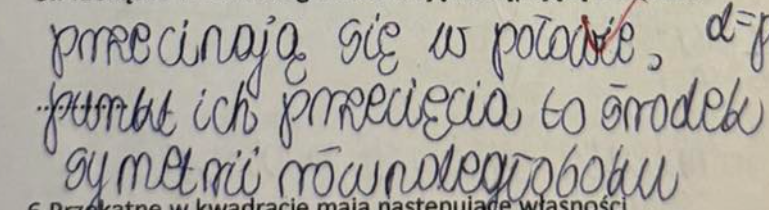 przecinają się w połowie, d=p
punkt ich przecięcia to środek
symetrii równoległoboku
6 Przekątne w kwadracie mają następujące własności